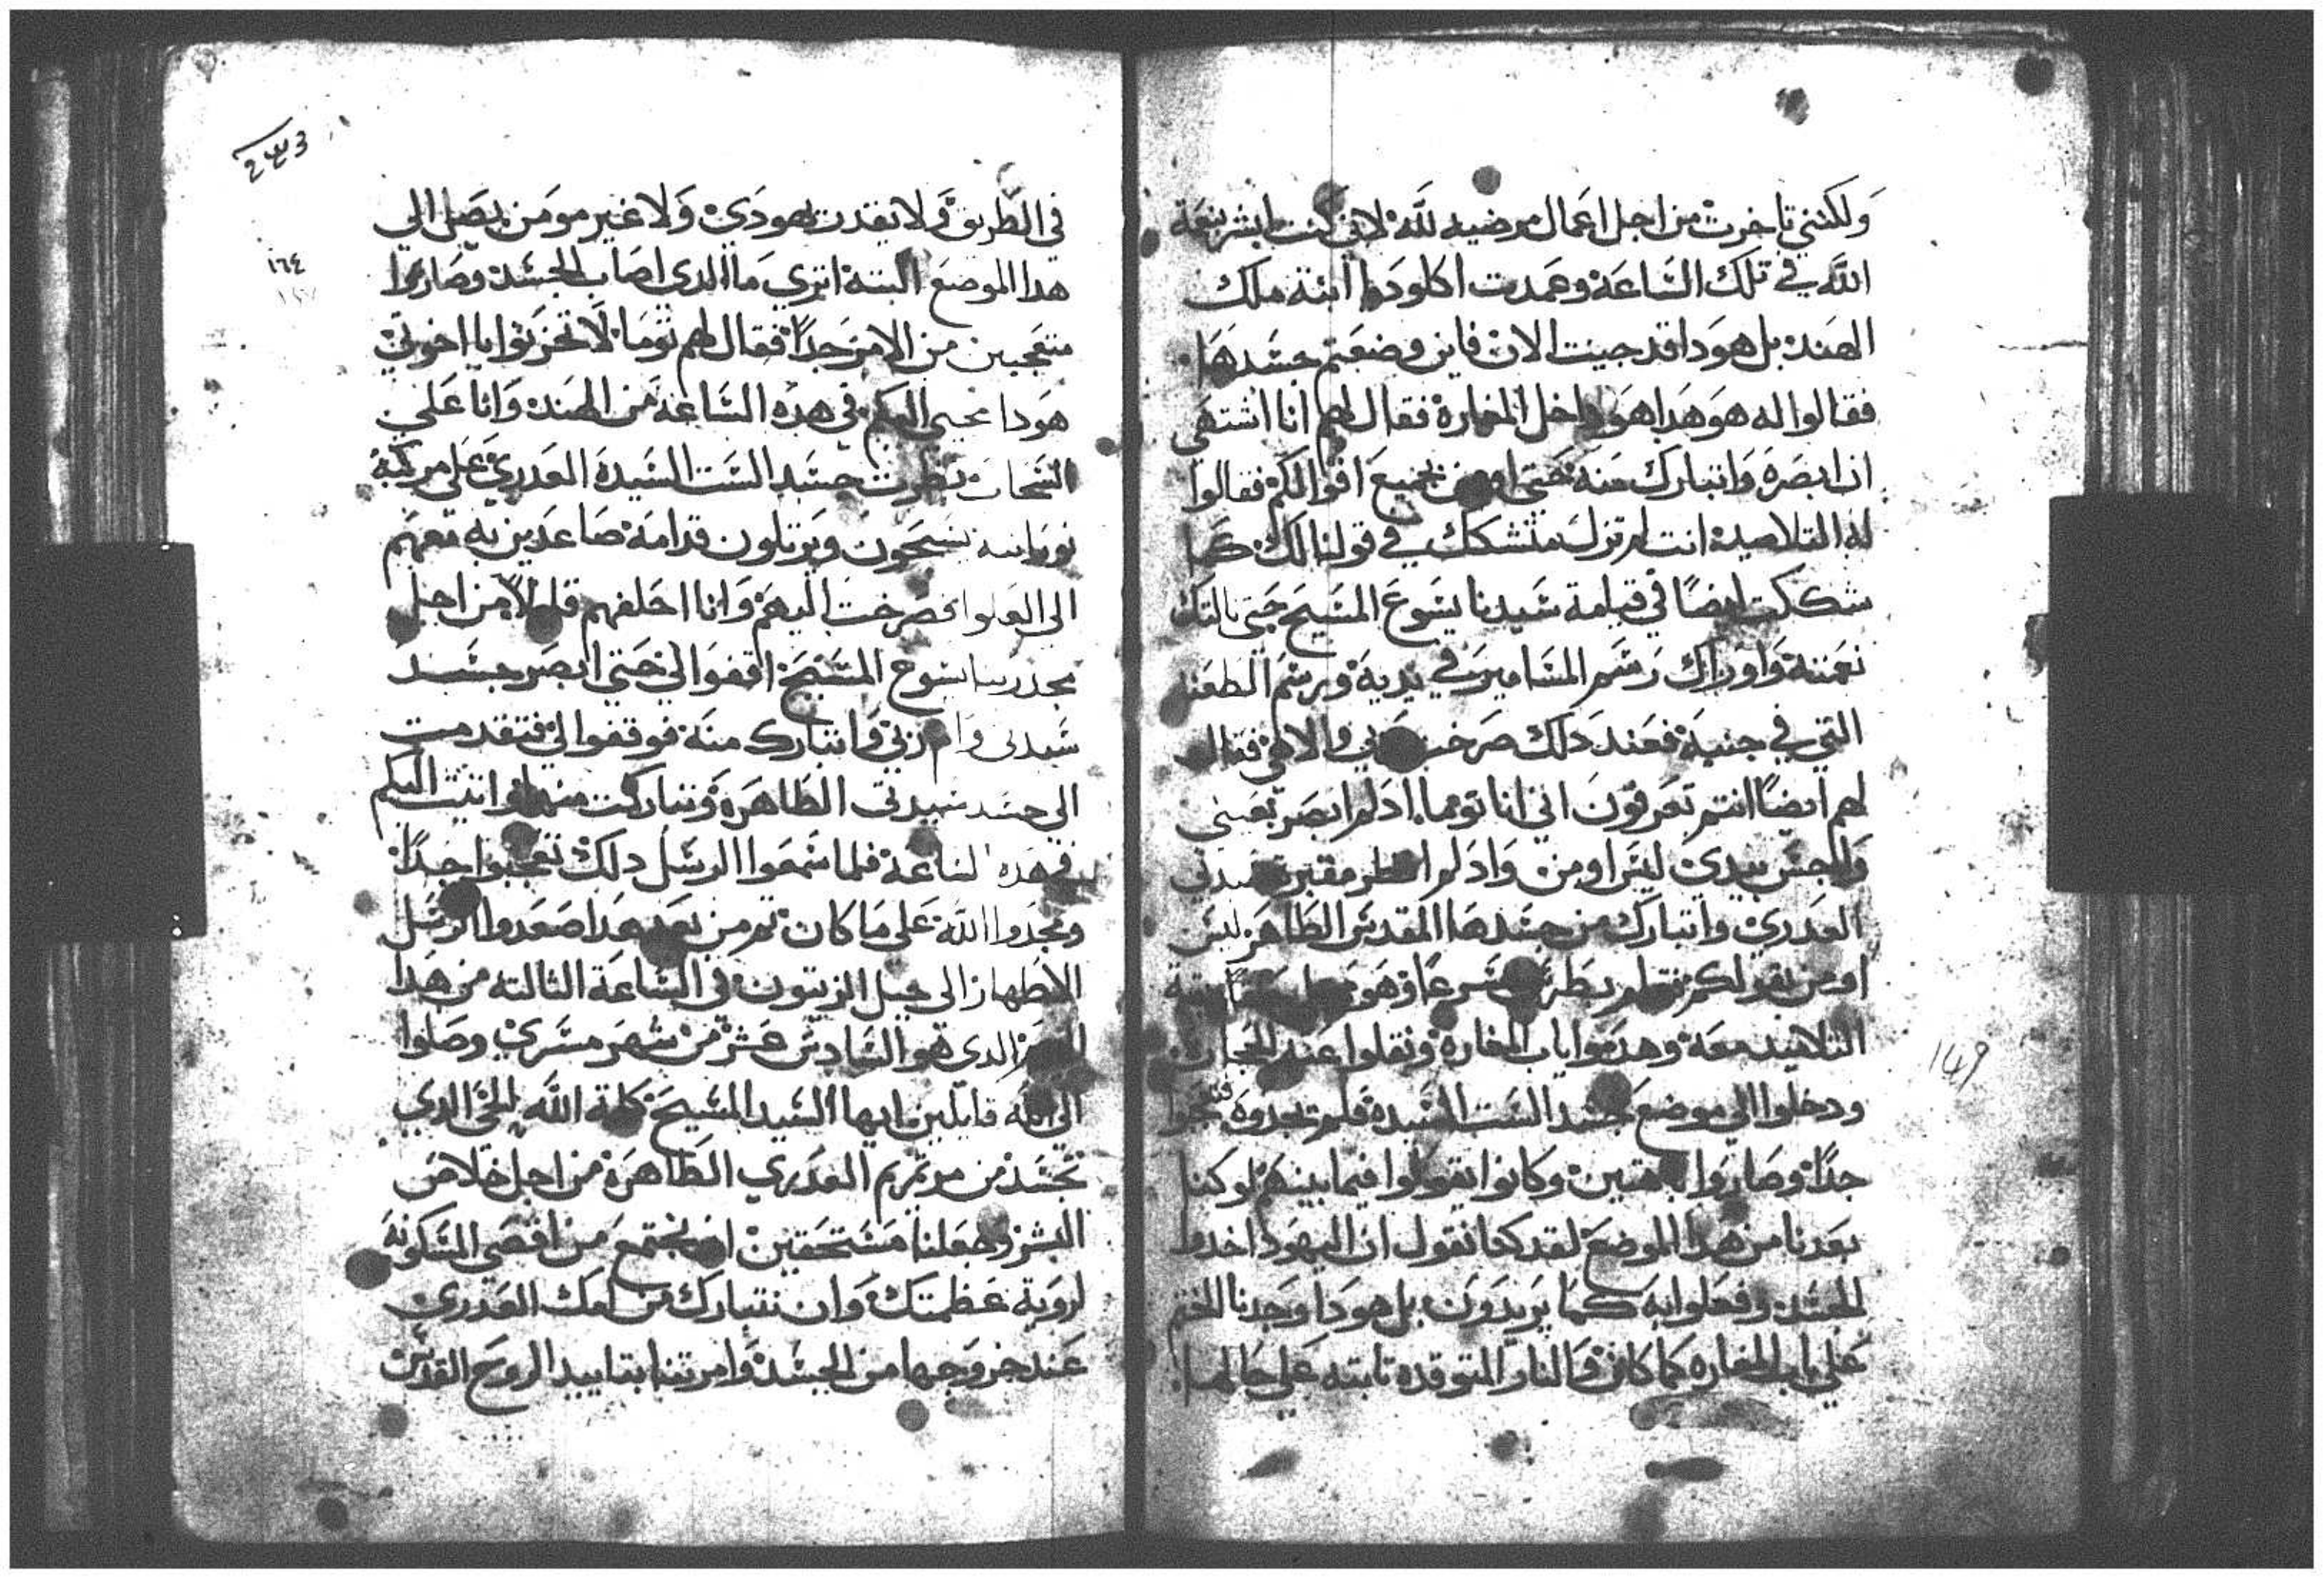 ولكنني تاخرت من اجل اعمال مرضيه لله لاني كنت ابشر بنعمة
الله في تلك الساعة وعمدت اكلوديا ابنة ملك
الهند بل هودا قد جيت الان فاين وضعتم جسدها
فقالوا له هو هدا هو داخل المغارة فقال لهم انا اشتهي
ان ابصره واتبارك منه حتي اومن بجميع اقوالكم فقالوا
له التلاميد انت لم تزل متشكك في قولنا لك كما
شككت ايضا في قيامة سيدنا يسوع المسيح حتي نالتك
نعمته واوراك رسم المسامير في يديه ورسم الطعنه
التي في جنبه فعند دلك صرخت ربي والاهي فقال
لهم ايضا انتم تعرفون اني انا توما ادلم ابصر بعيني
والجس بيدي ليس اومن وادلم انظر مقبرة سيدتي
العدري واتبارك من جسدها المقدس الطاهر ليس
اومن بقولكم فقام بطرس مسرعا وهو وبقية
التلاميد معه وهدموا باب المغارة ونقلوا عنه الحجارة
ودخلوا الي موضع جسد الست السيدة فلم يجدوه فتعجبوا
جدا وصاروا باهتين وكانوا يقولوا فيما بينهم لو كنا
بعدنا من هدا الموضع لقد كنا نقول ان اليهود اخدوا
الجسد وفعلوا به كما يريدون بل هودا وجدنا الختم
علي باب المغاره كما كان والنار المتوقده تابته علي حالها
٢٤٣
١٦٤
في الطريق ولا يقدر يهودي ولا غير مومن يصل الي
هدا الموضع البتة اتري ما الدي اصاب الجسد وصاروا
متعجبين من الامر جدا فقال لهم توما لا تحزنوا يا اخوتي
هودا مجيي اليكم في هده الساعة من الهند وانا علي
السحاب نظرت جسد الست السيدة العدري علي مركبة
نورانيه يسبحون ويرتلون قدامه صاعدين به معهم
الي العلوا فصرخت اليهم وانا احلفهم قايلا من اجل
مجد ربنا يسوع المسيح اقفوا لي حتي ابصر جسد
سيدتي وام ربي واتبارك منه فوقفوا لي فتقدمت
الي جسد سيدتي الطاهرة وتباركت منها واتيت اليكم
في هده الساعة فلما سمعوا الرسل دلك تعجبوا جدا
ومجدوا الله علي ما كان تم من بعد هدا صعدوا الرسل
الاطهار الي جبل الزيتون في الساعة التالته من هدا
اليوم الدي هو السادس عشر من شهر مسري وصلوا
الي الله قايلين ايها السيد المسيح كلمة الله الحي الدي
تجسد من مرتمريم العدري الطاهرة من اجل خلاص
البشر وجعلنا مستحقين ان نجتمع من اقصي المسكونة
لروية عظمتك وان نتبارك من امك العدري
عند خروجها من الجسد وامرتنا بتاييد الروح القدس
149